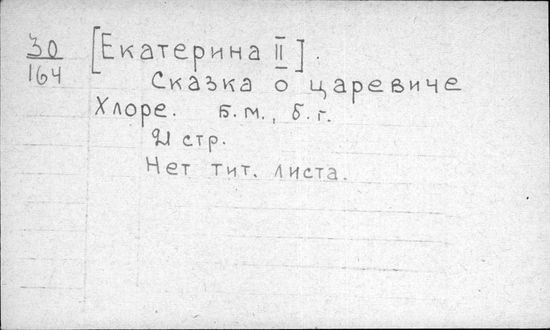 30
164
[Екатерина II].
Сказка о царевиче
Хлоре. Б.м., б.г.
21 стр.
Нет тит. листа.